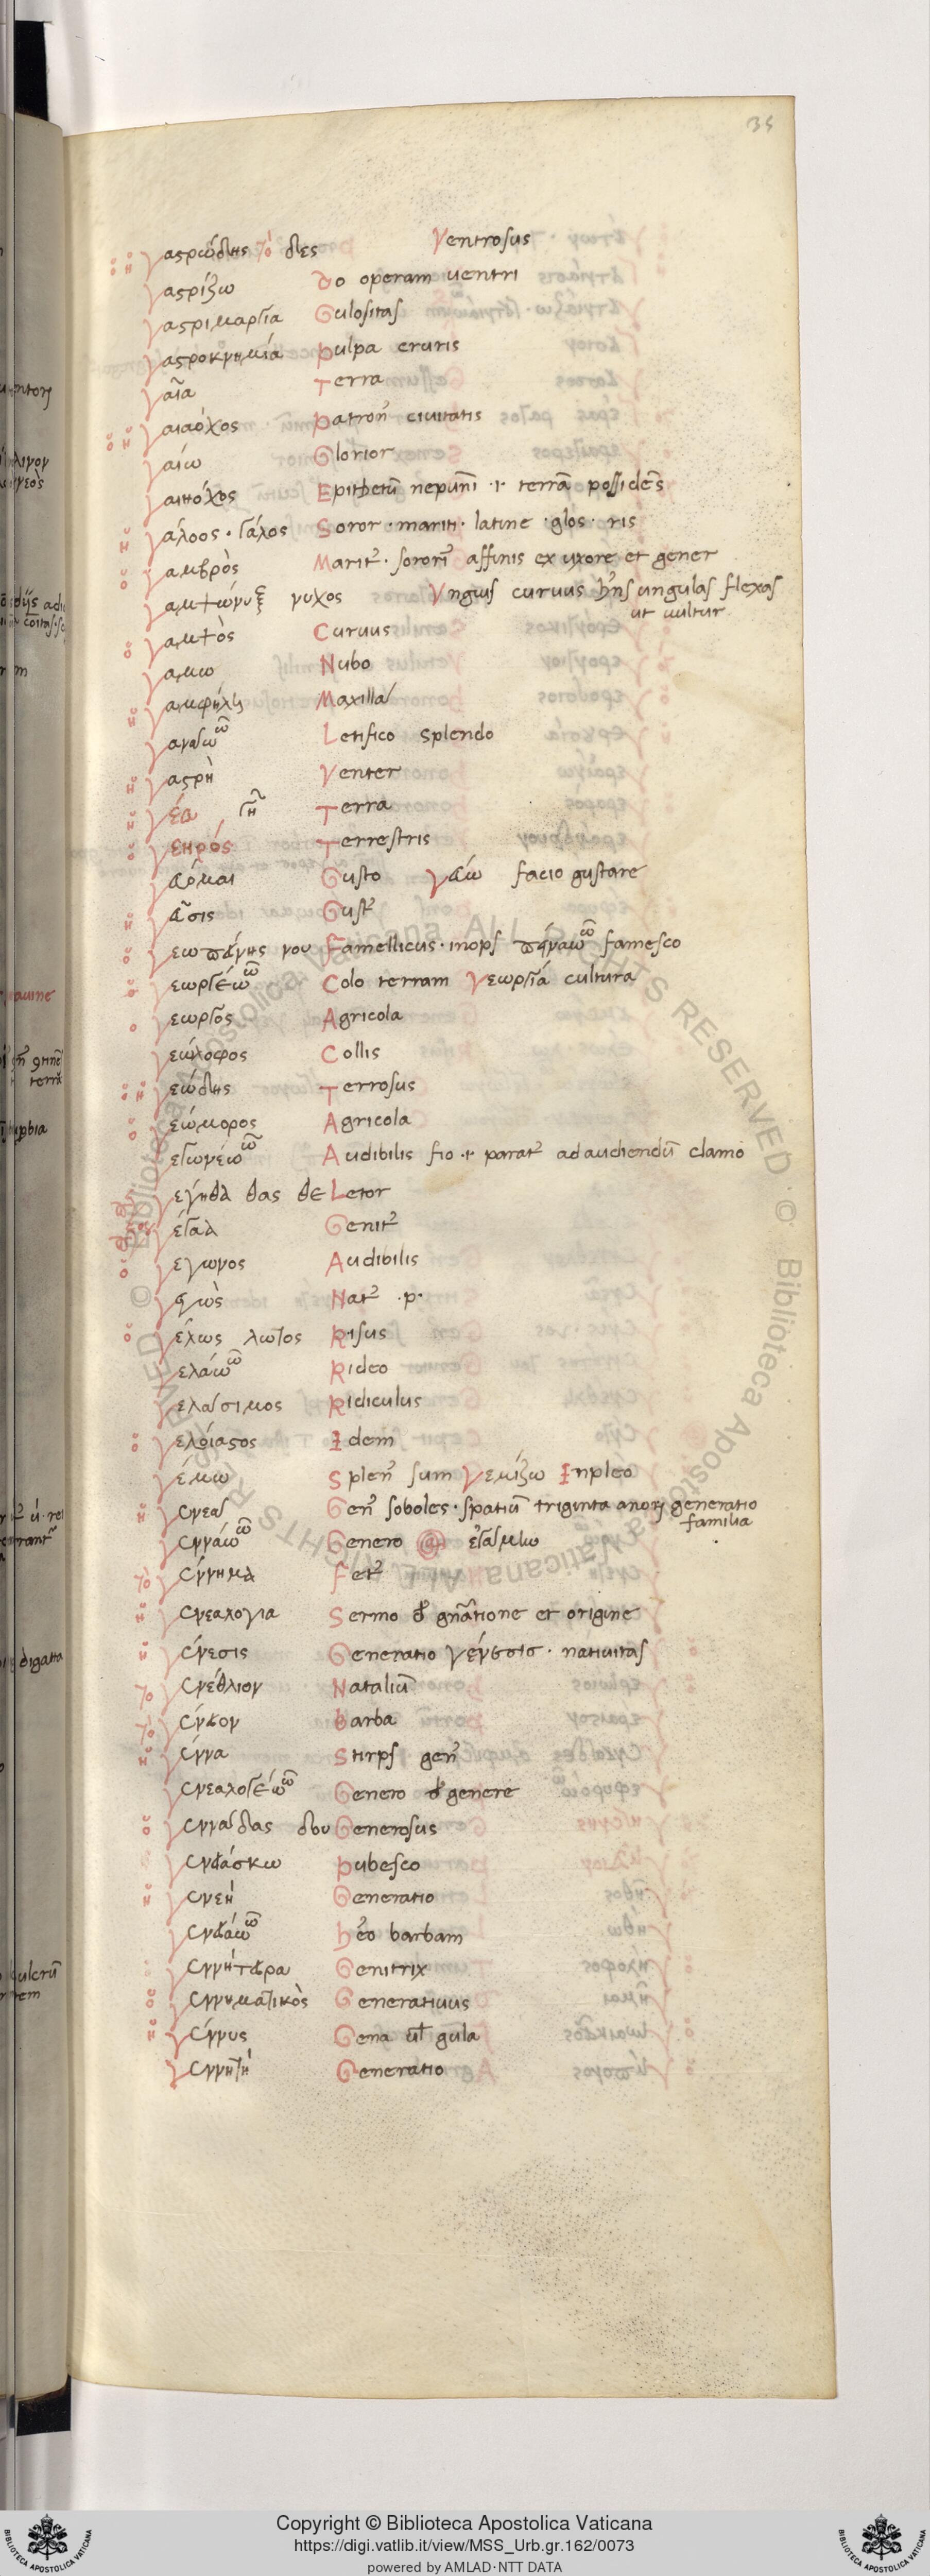 35
ὁ ἡ γαστρώδης τὸ δες Ventrosus
γαστρίζω Do operam uentri
γαστριμαργία Gulositas
γαστροκνημία Pulpa cruris
γαῖα Terra
ὁ ἡ γαιάοχος Patron᷒ ciuitatis
γαίω Glorior
γαιηόχος Epithetū neptuni .i. terrā possidēs
ἡ γάλοος · γάλος Soror · mariti · latine · glos · ris
ὁ γαμβρὸς Marit᷒ · affinis ex uxore et gener
γαμψώνυξ νυχος Vnguis curuus hn̄s ungulas flexas
ut uultur
ὁ γαμψὸς Curuus
γαμω Nubo
ἡ γαμφηλὴ Maxilla
γανόω ῶ Letifico splendo
ἡ γαστρὴ Venter
ἡ γέα, γῆ Terra
ὁ γεηρός Terrestris
γεύομαι Gusto γεύω facio gustare
ἡ γεῦσις Gust᷒
ὁ γεωπείνης νου Famellicus · inops πεινάω ῶ famesco
γεωργέω ῶ Colo terram γεωργία cultura
ὁ γεωργὸς Agricola
γεώλοφος Collis
ὁ ἡ γεώδης Terrosus
ὁ γεώμορος Agricola
γεγωνέω ῶ Audibilis fio .i. parat᷒ ad audiendū clamo
γέγηθα θας θε Letor
γέγαα Genit᷒
ὁ γέγωνος Audibilis
γεγὼς Nat᷒ .p.
ὁ γέλως λωτος Risus
γελάω ῶ Rideo
γελάσιμος Ridiculus
ὁ γελοίαστος Idem
γέμω Plen᷒ sum γεμίζω Inpleo
ἡ γενεα Gen᷒ soboles · spatiū triginta annorum generatio
familia
γεννάω ῶ Genero
τὸ γέννημα Fet᷒
ἡ γενεαλογια Sermo de gn̄atione et origine
ἡ γένεσις Generatio γένεσις · natiuitas
τὸ γενέθλιον Nataliū
τὸ γένειον Barba
ἡ γέννα Stirps gen᷒
γενεαλογέω ῶ Genero de genere
ὁ γεννάδας δου Generosus
γενειάσκω Pubesco
ἡ γενεή Generatio
γενειάω ῶ Hēo barbam
γεννήτειρα Genitrix
γεννηματικὸς Generatiuus
ἡ γέννυς Gena ul̄ gula
γεννητή Generatio
Copyright © Biblioteca Apostolica Vaticana
https://digi.vatlib.it/view/MSS_Urb.gr.162/0073
powered by AMLAD·NTT DATA